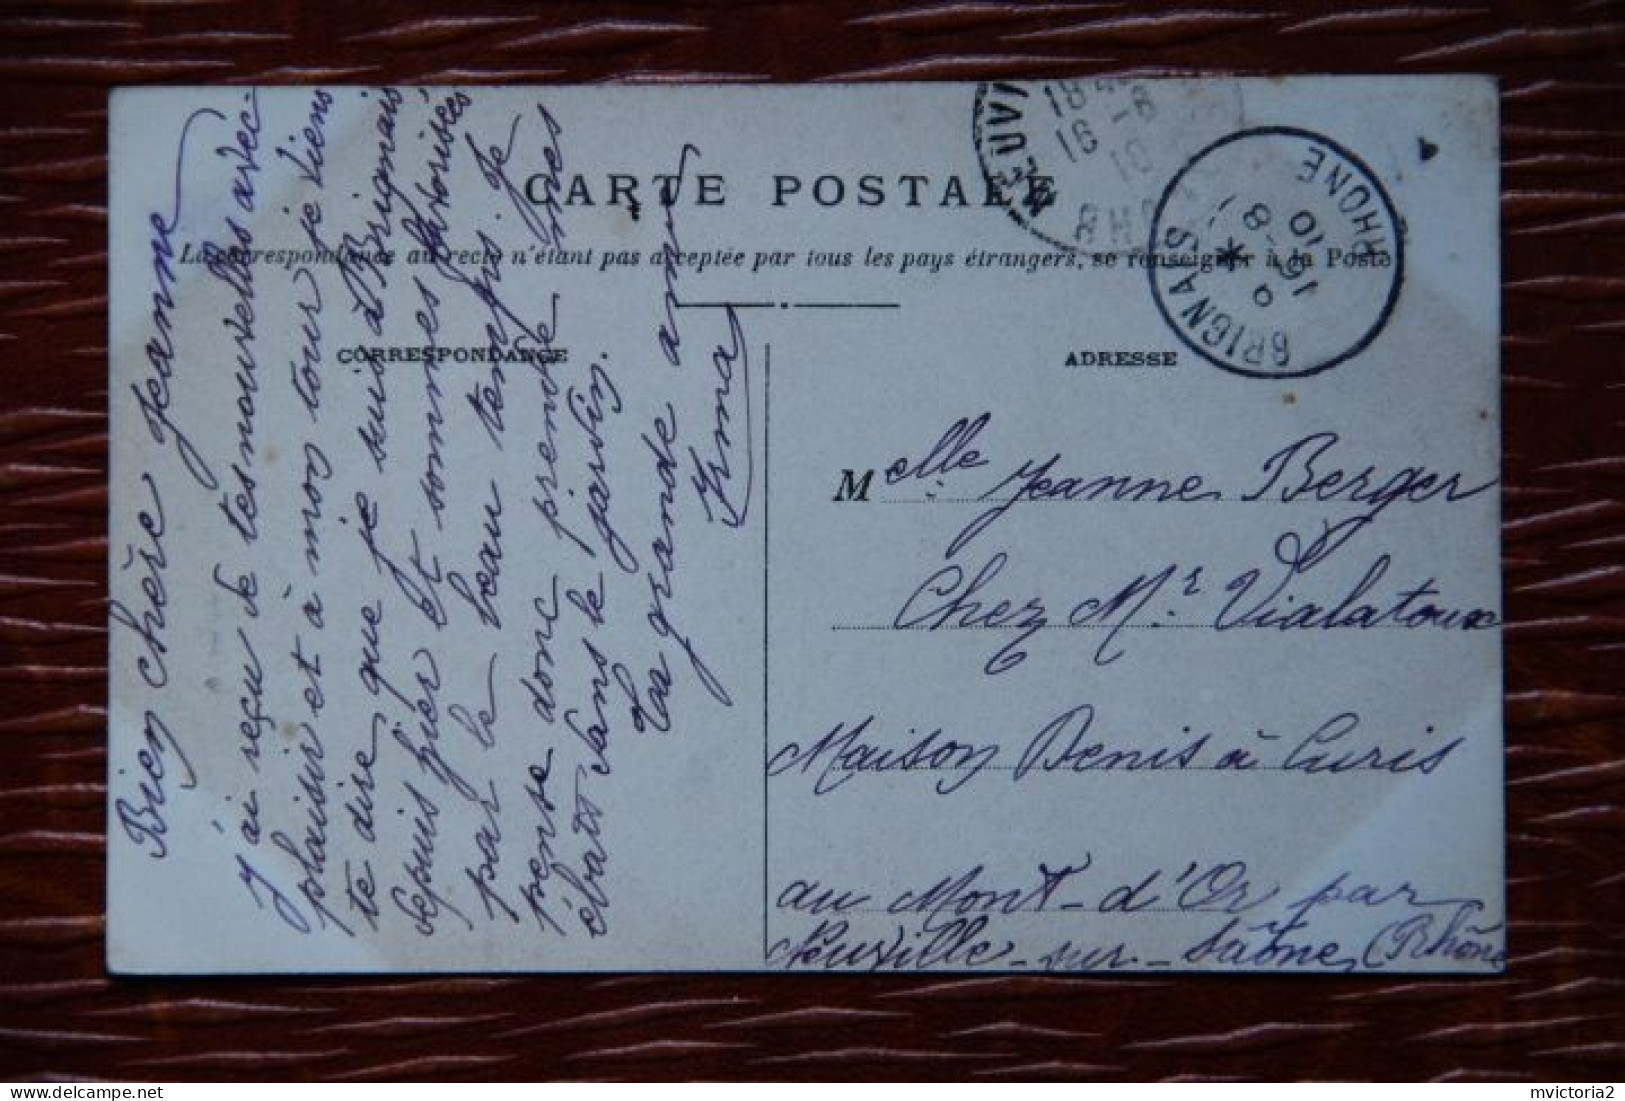 CARTE POSTALE
La correspondance au recto n'étant pas acceptée par tous les pays étrangers, se renseigner à la Poste
CORRESPONDANCE
ADRESSE
Bien chère Jeanne
j'ai reçu de tes nouvelles avec
plaisir et à mon tour je viens
te dire que je suis à Brignais
depuis hier et sommes favorisées
par le beau temps. Je
pense donc prendre mes
ébats dans le jardin.
Ta grande amie
Irma
Melle Jeanne Berger
Chez Mr Vialatoux
Maison Denis à Curis
au Mont-d'Or par
Neuville-sur-Saône (Rhône
NEUVI
184
16 -8
10
RH
BRIGNAIS
RHONE
*
9 -8
10
mvictoria2